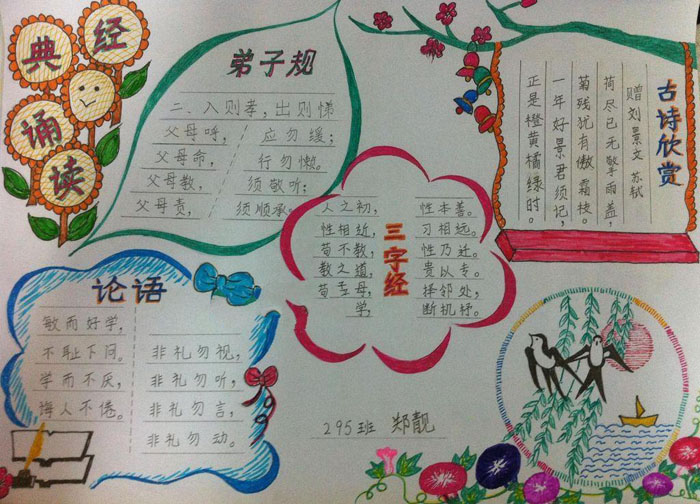 经典
诵读
弟子规
二、入则孝，出则悌
父母呼， 应勿缓；
父母命， 行勿懒。
父母教， 须敬听；
父母责， 须顺承。
古诗欣赏
赠刘景文 苏轼
荷尽已无擎雨盖，
菊残犹有傲霜枝。
一年好景君须记，
正是橙黄橘绿时。
三字经
人之初， 性本善。
性相近， 习相远。
苟不教， 性乃迁。
教之道， 贵以专。
母， 择邻处，
学， 断机杼。
论语
敏而好学，
不耻下问。
学而不厌，
诲人不倦。
非礼勿视，
非礼勿听，
非礼勿言，
非礼勿动。
295班 郑靓